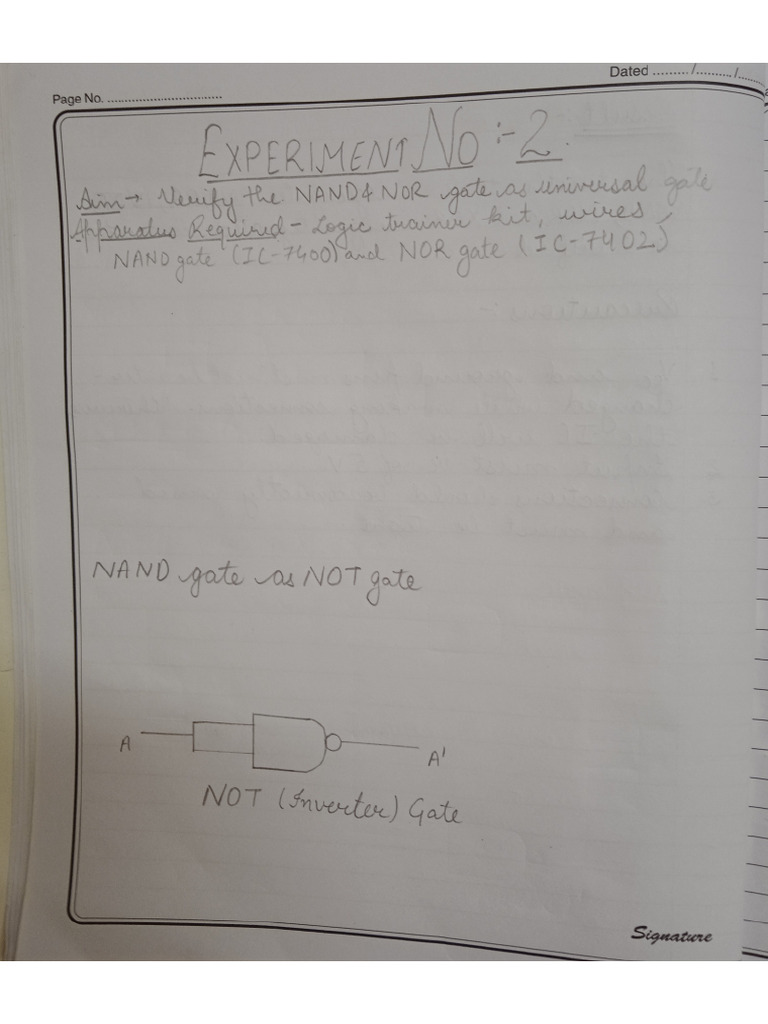 Dated ........./........../.......
Page No. ................................
EXPERIMENT NO :- 2.
Aim → Verify the NAND & NOR gate as universal gate
Apparatus Required - Logic trainer kit, wires,
NAND gate (IC-7400) and NOR gate (IC-7402)
NAND gate as NOT gate
A A'
NOT (Inverter) Gate
Signature